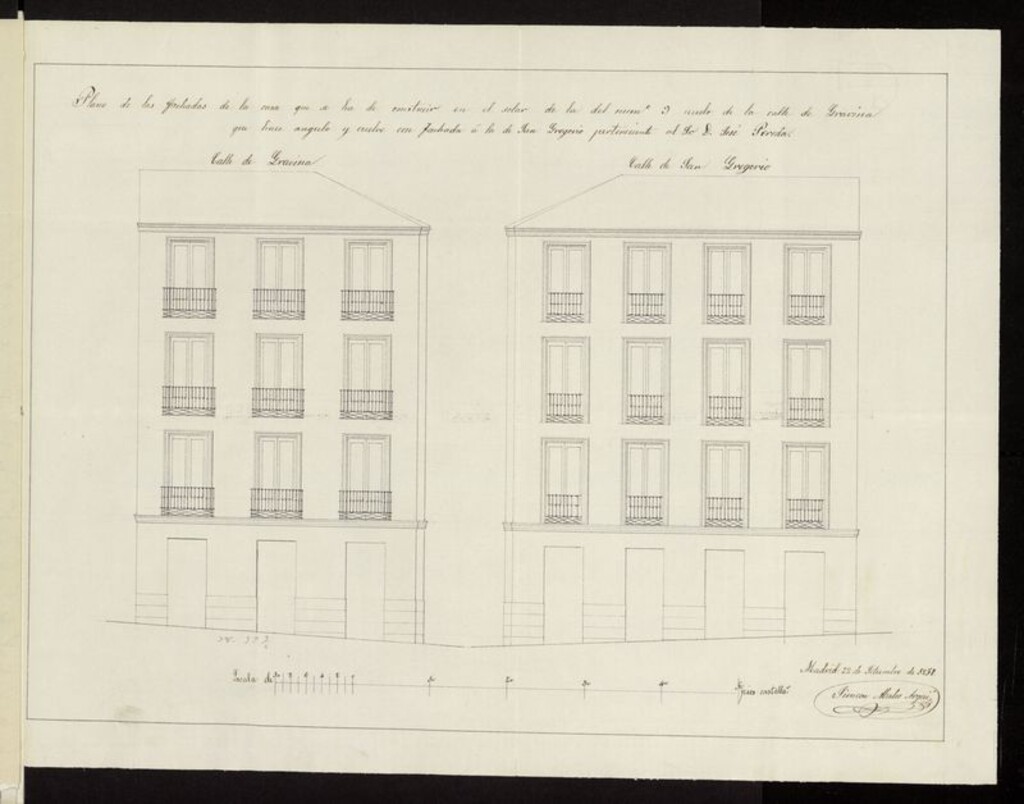 Plano de las fachadas de la casa que se ha de construir en el solar de la del num.º 9 nuevo de la calle de Gravina
que hace angulo y vuelve con fachada á la de San Gregorio perteneciente al Sr D. José Pereda.
Calle de Gravina
Calle de San Gregorio
Escala de
10
20
30
40
pies castell.s
Madrid 22 de Setiembre de 1851